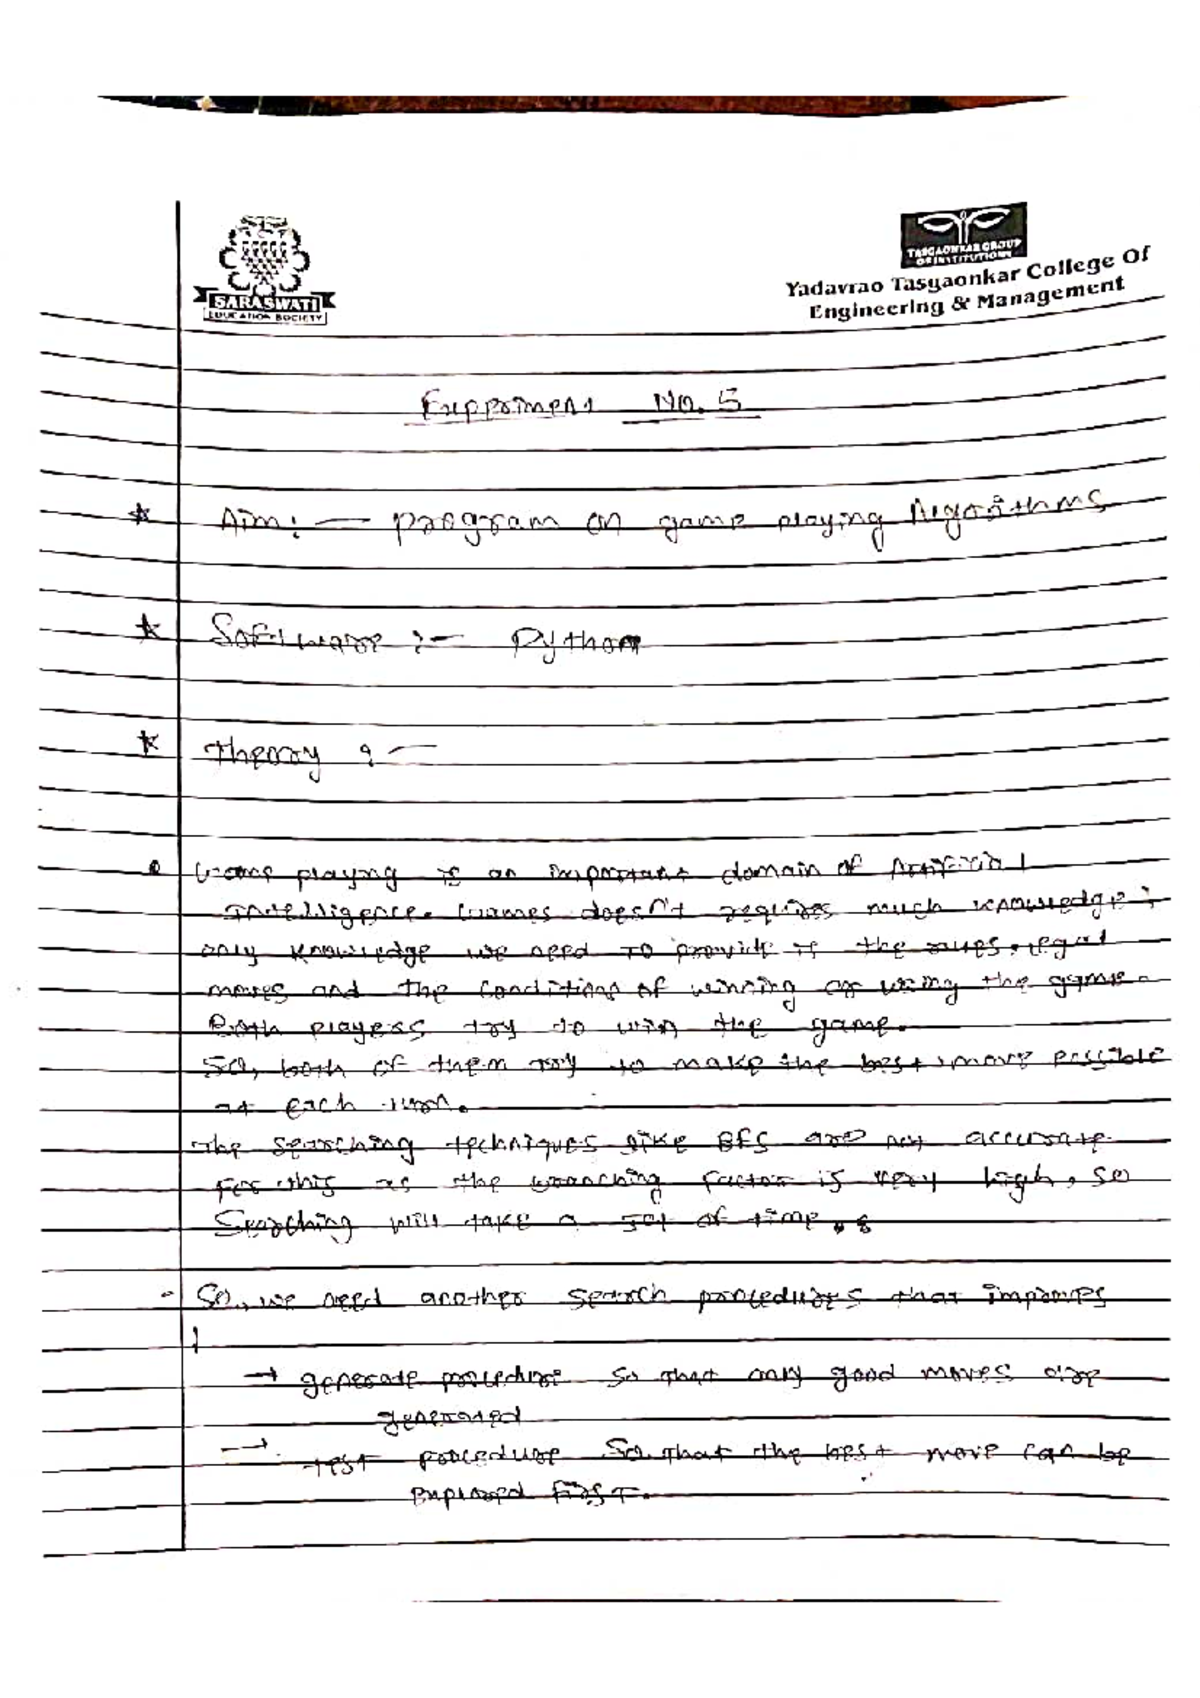 SARASWATI
EDUCATION SOCIETY
TASGAONKAR GROUP
OF INSTITUTIONS
Yadavrao Tasgaonkar College Of
Engineering & Management
Experiment No. 5
* Aim :— program on game playing Algorithms
* Software :— Python
* Theory :—
• Game playing is an important domain of Artificial
Intelligence. Games doesn't require much knowledge ;
only knowledge we need to provide is the rules, legal
moves and the conditions of winning or losing the game.
Both players try to win the game.
So, both of them try to make the best move possible
at each turn.
The searching techniques like BFS are not accurate
for this as the branching factor is very high, so
Searching will take a lot of time.
- So, we need another search procedures that improves
→ generate procedure so that only good moves are
generated
→ test procedure so that the best move can be
explored first.